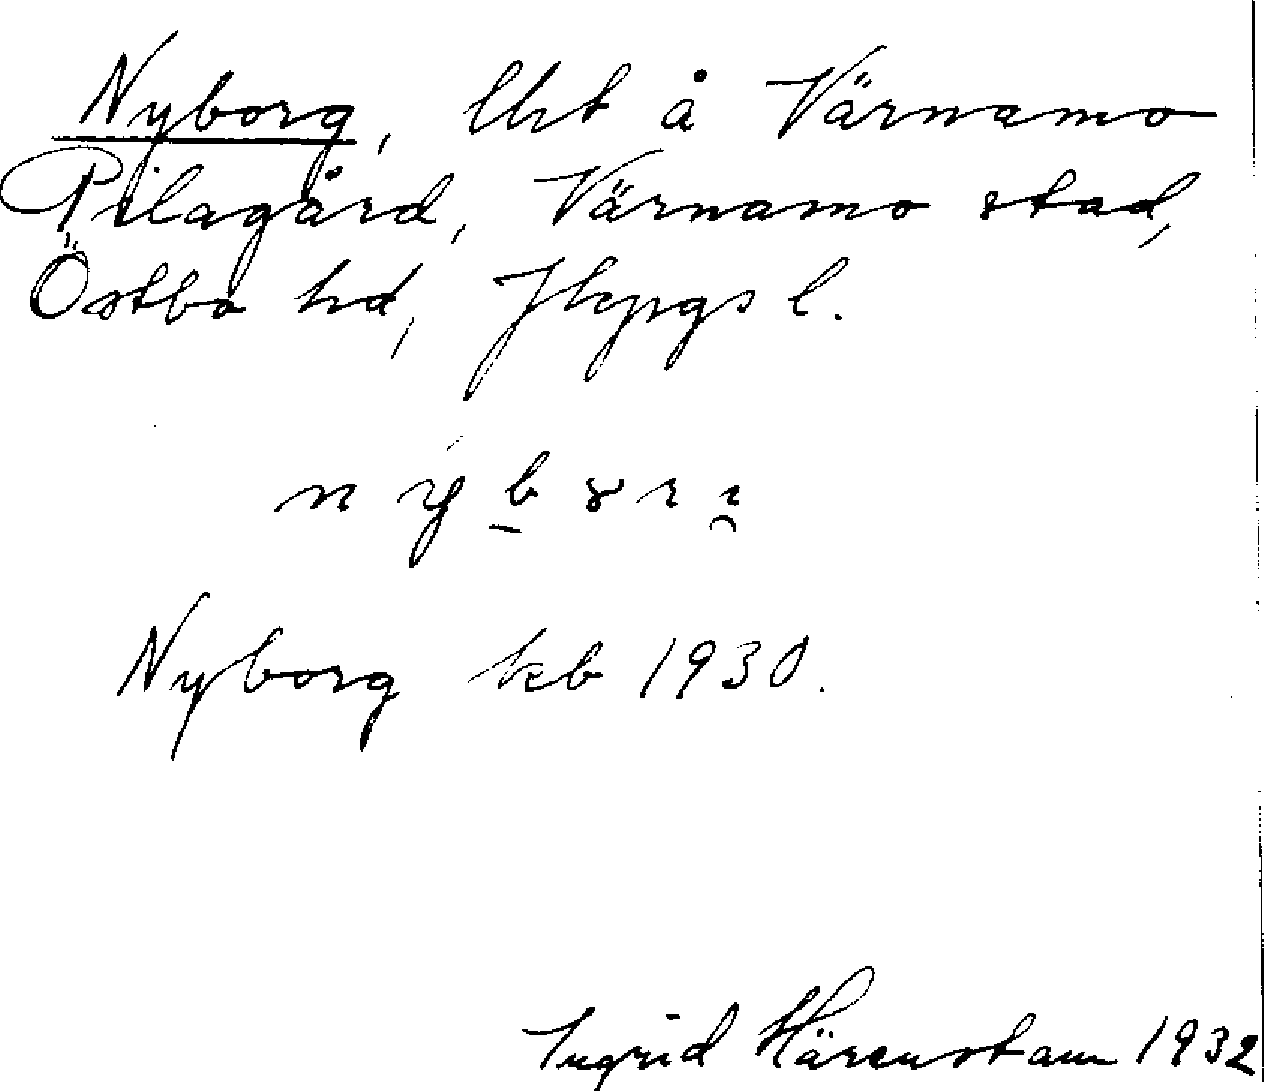 Nyborg, lht å Värnamo
Pilagård, Värnamo stad,
Östbo hd, Jkpgs l.
Nyborg kb 1930.
Ingrid Härenstam 1932